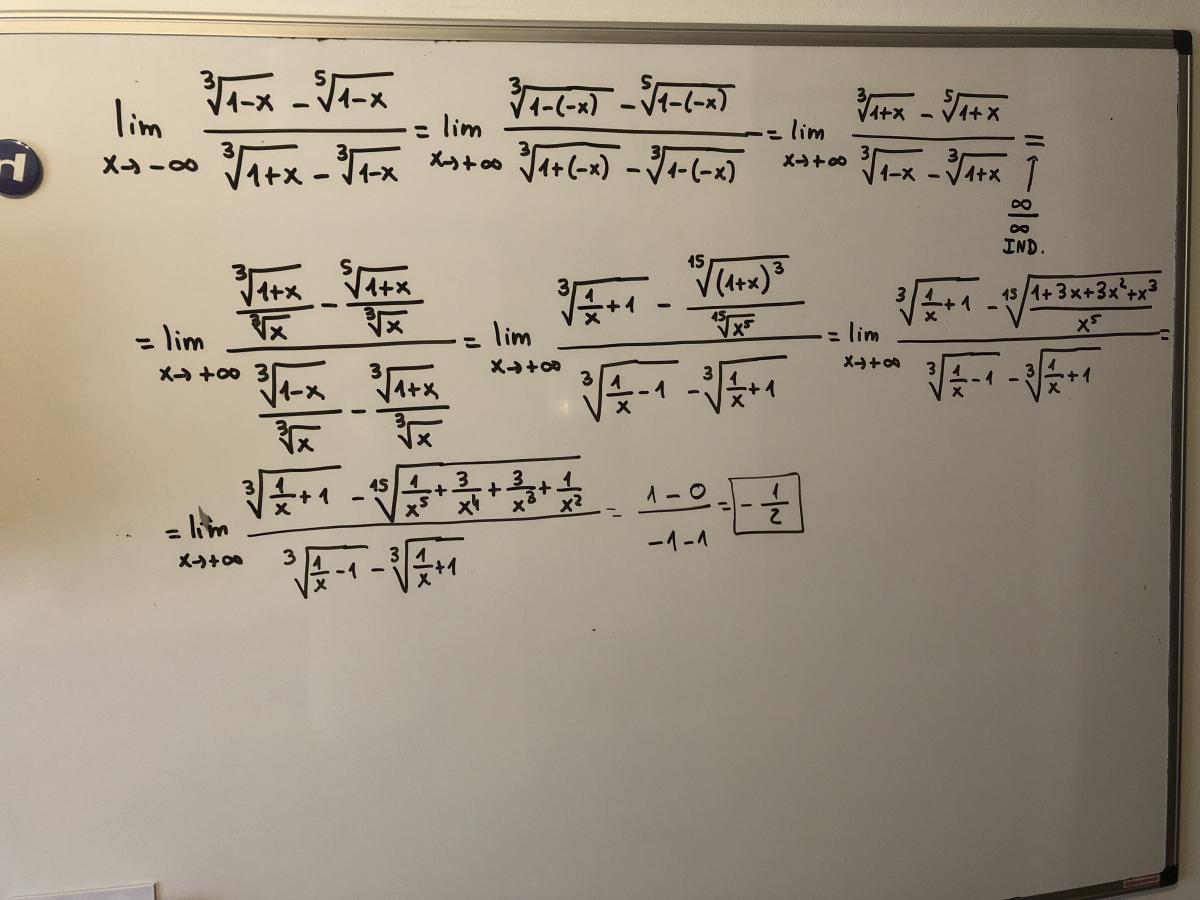 lim x→-∞ (∛(1-x) - ⁵√(1-x)) / (∛(1+x) - ∛(1-x)) = lim x→+∞ (∛(1-(-x)) - ⁵√(1-(-x))) / (∛(1+(-x)) - ∛(1-(-x))) = lim x→+∞ (∛(1+x) - ⁵√(1+x)) / (∛(1-x) - ∛(1+x)) =
↑ ∞/∞
IND.
= lim x→+∞ (∛(1+x)/∛x - ⁵√(1+x)/∛x) / (∛(1-x)/∛x - ∛(1+x)/∛x) = lim x→+∞ (∛(1/x+1) - ¹⁵√((1+x)³)/¹⁵√(x⁵)) / (∛(1/x-1) - ∛(1/x+1)) = lim x→+∞ (∛(1/x+1) - ¹⁵√((1+3x+3x²+x³)/x⁵)) / (∛(1/x-1) - ∛(1/x+1)) =
= lim x→+∞ (∛(1/x+1) - ¹⁵√(1/x⁵+3/x⁴+3/x³+1/x²)) / (∛(1/x-1) - ∛(1/x+1)) = (1-0)/(-1-1) = -1/2